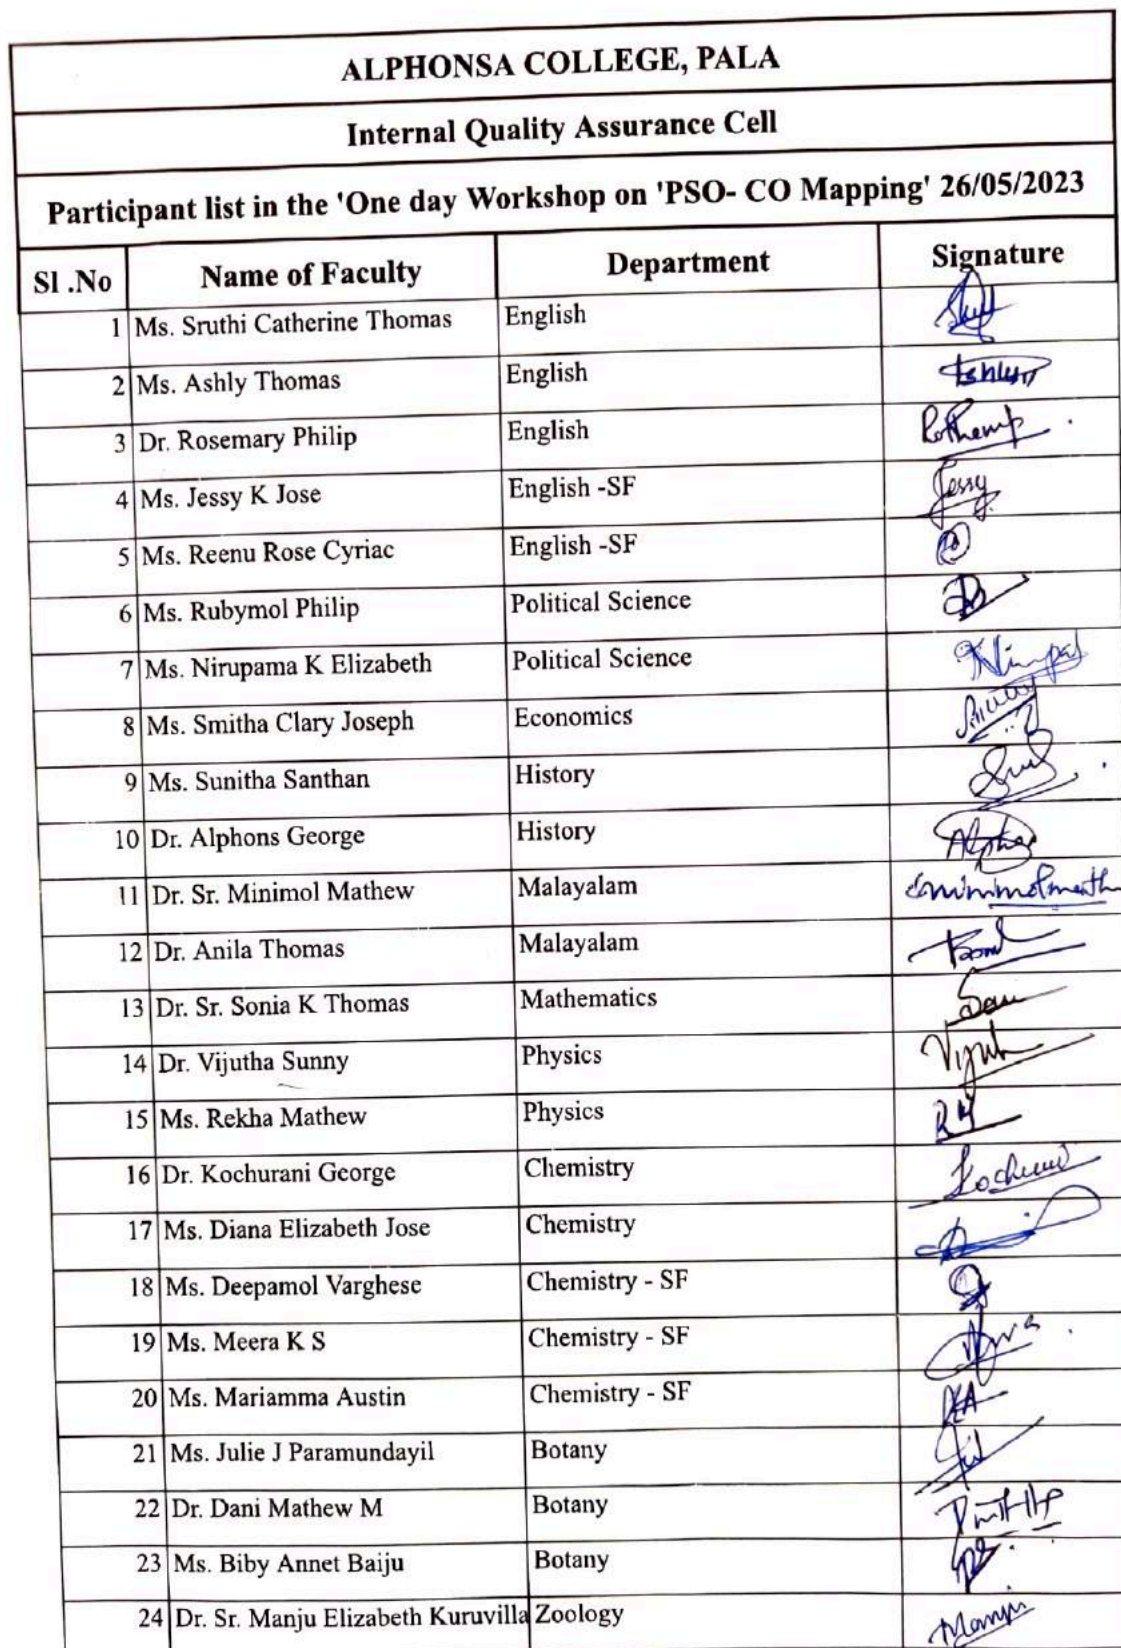 ALPHONSA COLLEGE, PALA
Internal Quality Assurance Cell
Participant list in the 'One day Workshop on 'PSO- CO Mapping' 26/05/2023
Sl .No Name of Faculty Department Signature
1 Ms. Sruthi Catherine Thomas English
2 Ms. Ashly Thomas English
3 Dr. Rosemary Philip English
4 Ms. Jessy K Jose English -SF Jessy
5 Ms. Reenu Rose Cyriac English -SF
6 Ms. Rubymol Philip Political Science
7 Ms. Nirupama K Elizabeth Political Science
8 Ms. Smitha Clary Joseph Economics
9 Ms. Sunitha Santhan History
10 Dr. Alphons George History
11 Dr. Sr. Minimol Mathew Malayalam
12 Dr. Anila Thomas Malayalam
13 Dr. Sr. Sonia K Thomas Mathematics
14 Dr. Vijutha Sunny Physics
15 Ms. Rekha Mathew Physics
16 Dr. Kochurani George Chemistry
17 Ms. Diana Elizabeth Jose Chemistry
18 Ms. Deepamol Varghese Chemistry - SF
19 Ms. Meera K S Chemistry - SF
20 Ms. Mariamma Austin Chemistry - SF
21 Ms. Julie J Paramundayil Botany
22 Dr. Dani Mathew M Botany
23 Ms. Biby Annet Baiju Botany
24 Dr. Sr. Manju Elizabeth Kuruvilla Zoology